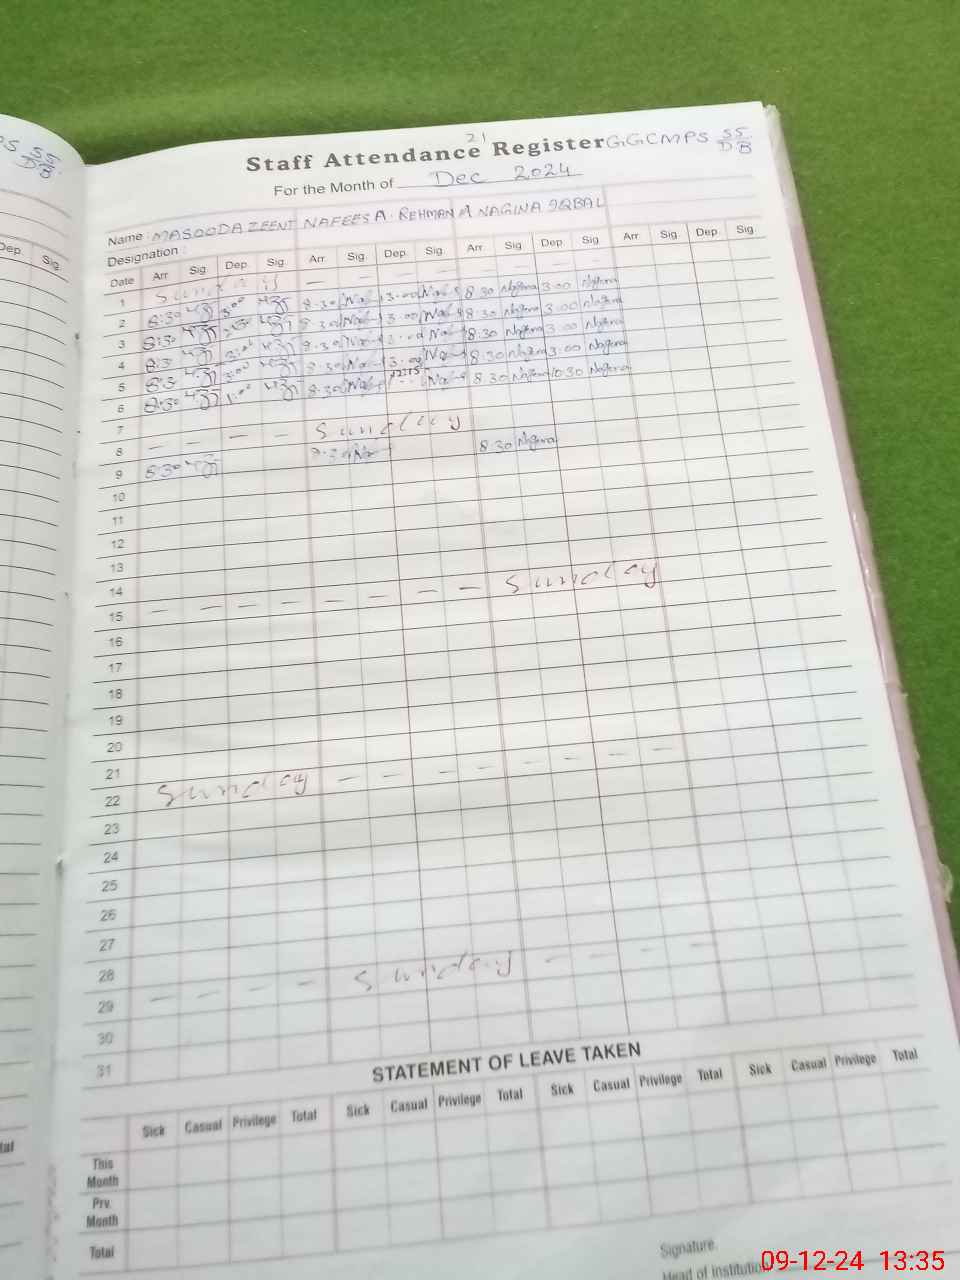 21
Staff Attendance Register GGCMPS SS DB
For the Month of Dec 2024
Name : MASOODA ZEENT NAFEES A. REHMAN NAGINA IQBAL
Designation :
Date Arr Sig. Dep. Sig. Arr. Sig. Dep. Sig. Arr. Sig. Dep. Sig. Arr. Sig. Dep. Sig.
1 Sunday — — — — — — — —
2 8:30 3:00 8.30 3.00 8.30 Nagina 3.00 Nagina
3 8:30 8.30 3.00 8.30 Nagina 3.00 Nagina
4 8:30 3:00 8.30 8.30 Nagina 3.00 Nagina
5 8:30 3:00 8.30 3.00 8.30 Nagina 3.00 Nagina
6 8:30 1:00 8.30 12:15 8.30 Nagina 10.30 Nagina
7
8 — — — — Sunday
9 8:30 8.30 Nagina
10
11
12
13
14
15 — — — — — — — — Sunday
16
17
18
19
20
21
22 Sunday — — — — — — — —
23
24
25
26
27
28
29 — — — — Sunday — — — —
30
31
STATEMENT OF LEAVE TAKEN
Sick Casual Privilege Total Sick Casual Privilege Total Sick Casual Privilege Total Sick Casual Privilege Total
This Month
Prv. Month
Total
Signature.
Head of Institution
09-12-24 13:35
SS
DB
Dep. Sig.